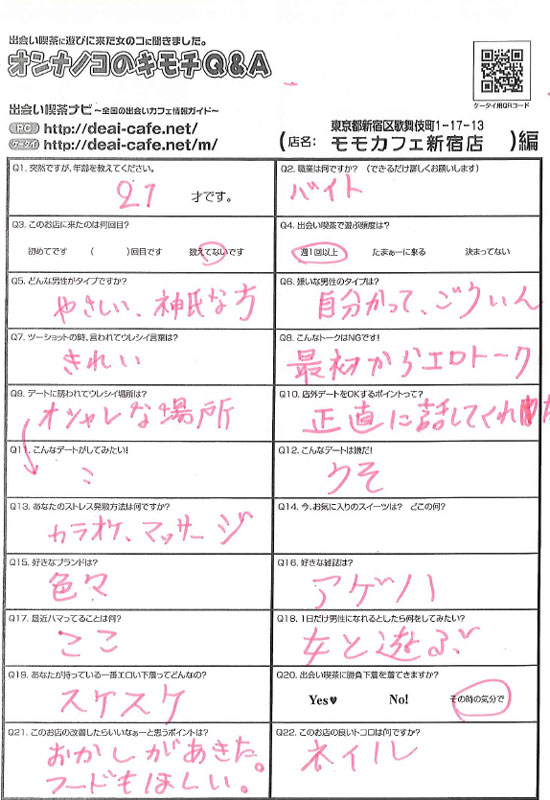 出会い喫茶に遊びに来た女のコに聞きました。
オンナノコのキモチQ&A
ケータイ用QRコード
出会い喫茶ナビ～全国の出会いカフェ情報ガイド～
PC http://deai-cafe.net/
ケータイ http://deai-cafe.net/m/
東京都新宿区歌舞伎町1-17-13
(店名: モモカフェ新宿店 )編
Q1. 突然ですが、年齢を教えてください。
21 才です。
Q2. 職業は何ですか? (できるだけ詳しくお願いします)
バイト
Q3. このお店に来たのは何回目?
初めてです ( )回目です 数えてないです
Q4. 出会い喫茶で遊ぶ頻度は?
週1回以上 たまぁーに来る 決まってない
Q5. どんな男性がタイプですか?
やさしい、神氏な方
Q6. 嫌いな男性のタイプは?
自分かって、ごういん
Q7. ツーショットの時、言われてウレシイ言葉は?
きれい
Q8. こんなトークはNGです!
最初からエロトーク
Q9. デートに誘われてウレシイ場所は?
オシャレな場所
Q10. 店外デートをOKするポイントって?
正直に話してくれ
Q11. こんなデートがしてみたい!
Q12. こんなデートは嫌だ!
うそ
Q13. あなたのストレス発散方法は何ですか?
カラオケ、マッサージ
Q14. 今、お気に入りのスイーツは? どこの何?
Q15. 好きなブランドは?
色々
Q16. 好きな雑誌は?
アゲハ
Q17. 最近ハマってることは何?
ここ
Q18. 1日だけ男性になれるとしたら何をしてみたい?
女と遊ぶ
Q19. あなたが持っている一番エロい下着ってどんなの?
スケスケ
Q20. 出会い喫茶に勝負下着を着てきますか?
Yes♥ No! その時の気分で
Q21. このお店の改善したらいいなぁーと思うポイントは?
おかしがあきた。
フードもほしい。
Q22. このお店の良いトコロは何ですか?
ネイル